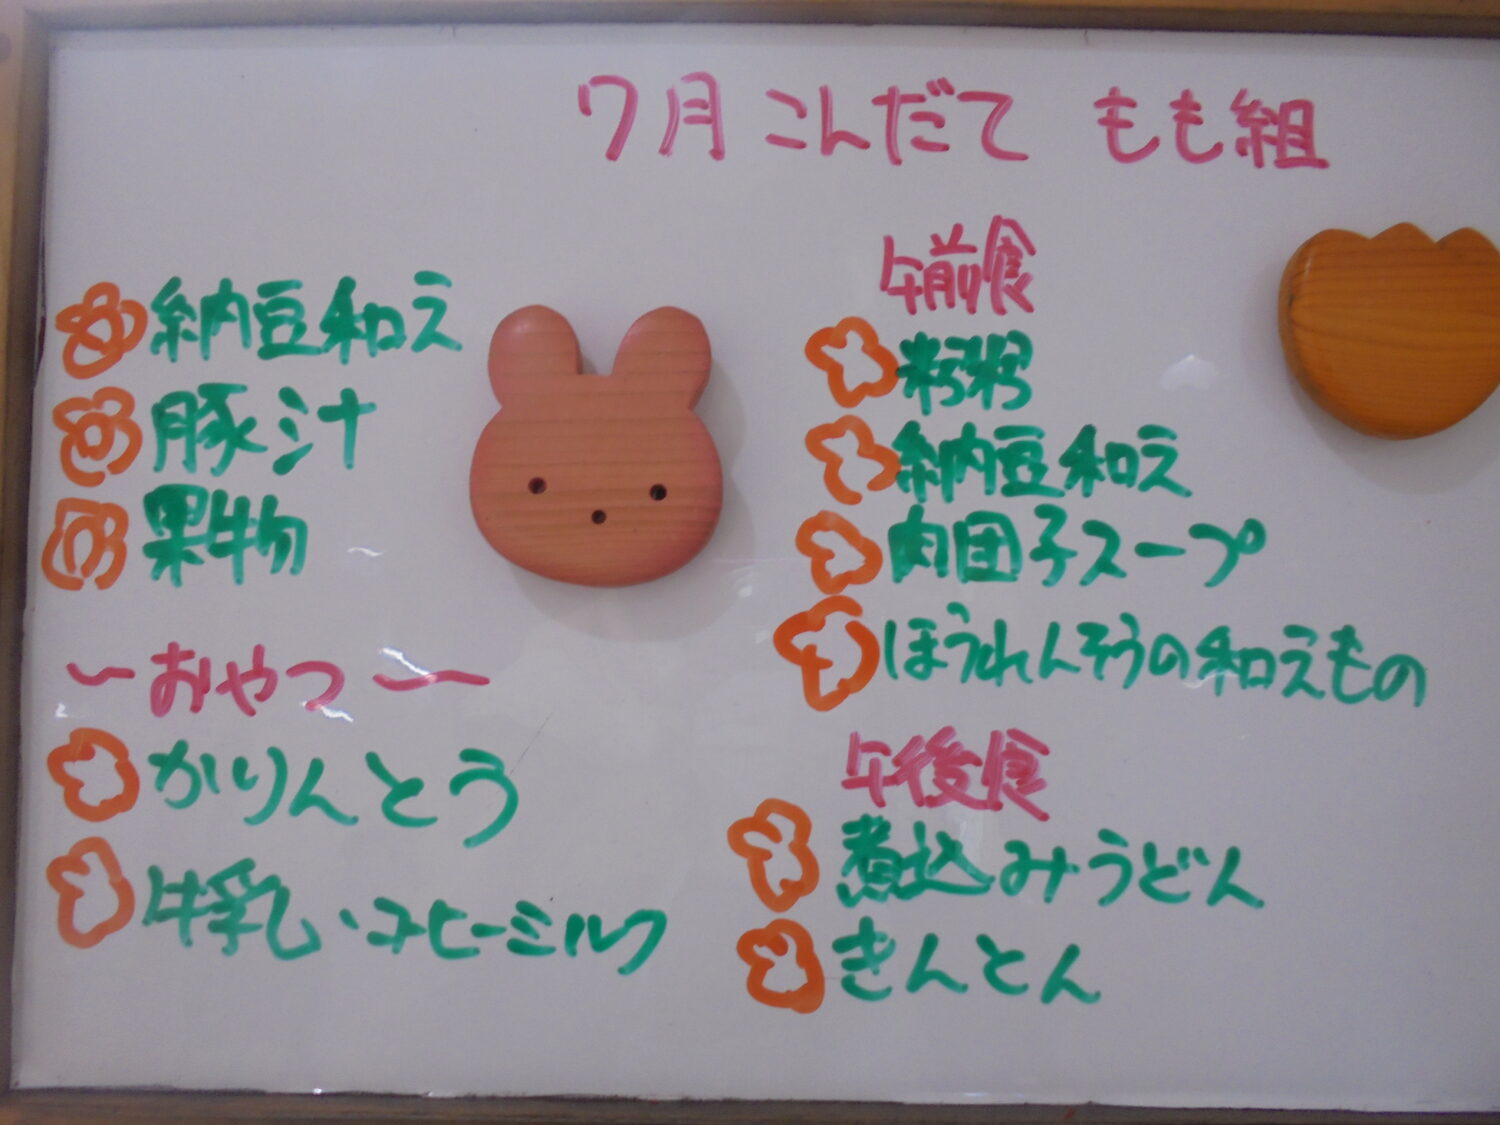 7月 こんだて もも組
納豆和え
豚汁
果物
～おやつ～
かりんとう
牛乳・コヒーミルク
午前食
納豆和え
肉団子スープ
ほうれんそうの和えもの
午後食
煮込みうどん
きんとん